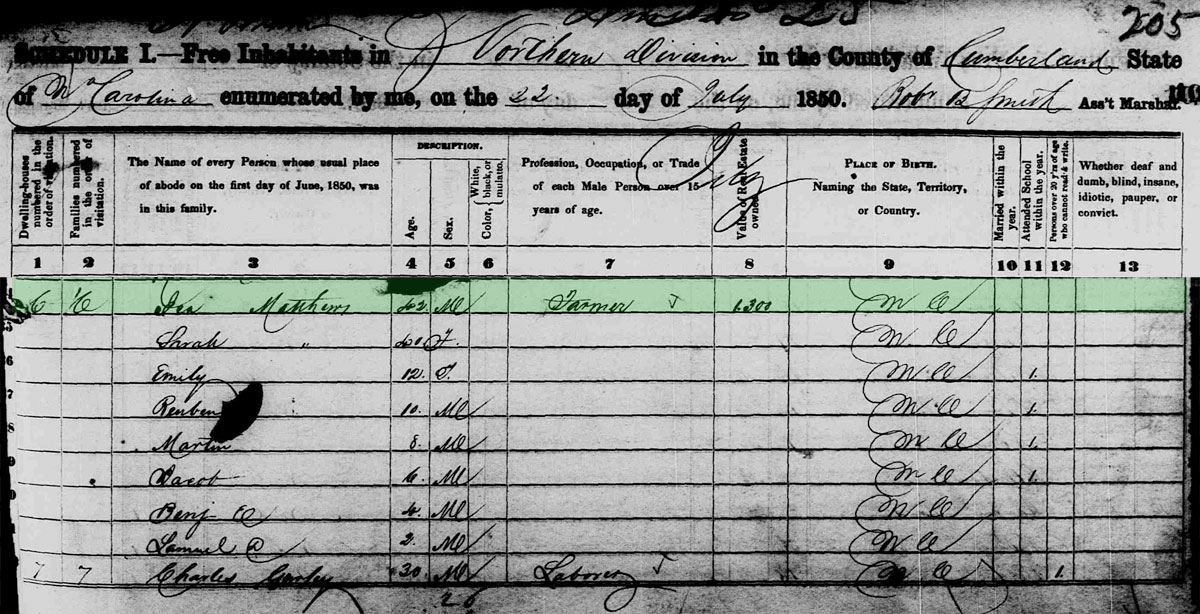 205
SCHEDULE I.—Free Inhabitants in Northern Division in the County of Cumberland State
of N Carolina enumerated by me, on the 22 day of July 1850. Robt B Smith Ass't Marshal.
Dwelling-houses numbered in the order of visitation.
Families numbered in the order of visitation.
The Name of every Person whose usual place of abode on the first day of June, 1850, was in this family.
DESCRIPTION.
Age.
Sex.
Color, White, black, or mulatto.
Profession, Occupation, or Trade of each Male Person over 15 years of age.
Value of Real Estate owned
PLACE OF BIRTH.
Naming the State, Territory, or Country.
Married within the year.
Attended School within the year.
Persons over 20 y'rs of age who cannot read & write.
Whether deaf and dumb, blind, insane, idiotic, pauper, or convict.
1 2 3 4 5 6 7 8 9 10 11 12 13
6 6 Matthews 42 M Farmer 1.300 N C
Sarah " 40 F. N C
Emily 12. F. N C 1.
Reuben 10. M N C 1.
Martin 8. M N C 1.
Jacob 6. M N C 1.
Benj C 4. M N C
Samuel 2. M N C
7 7 Charles Gurley 30 M Laborer N C 1.